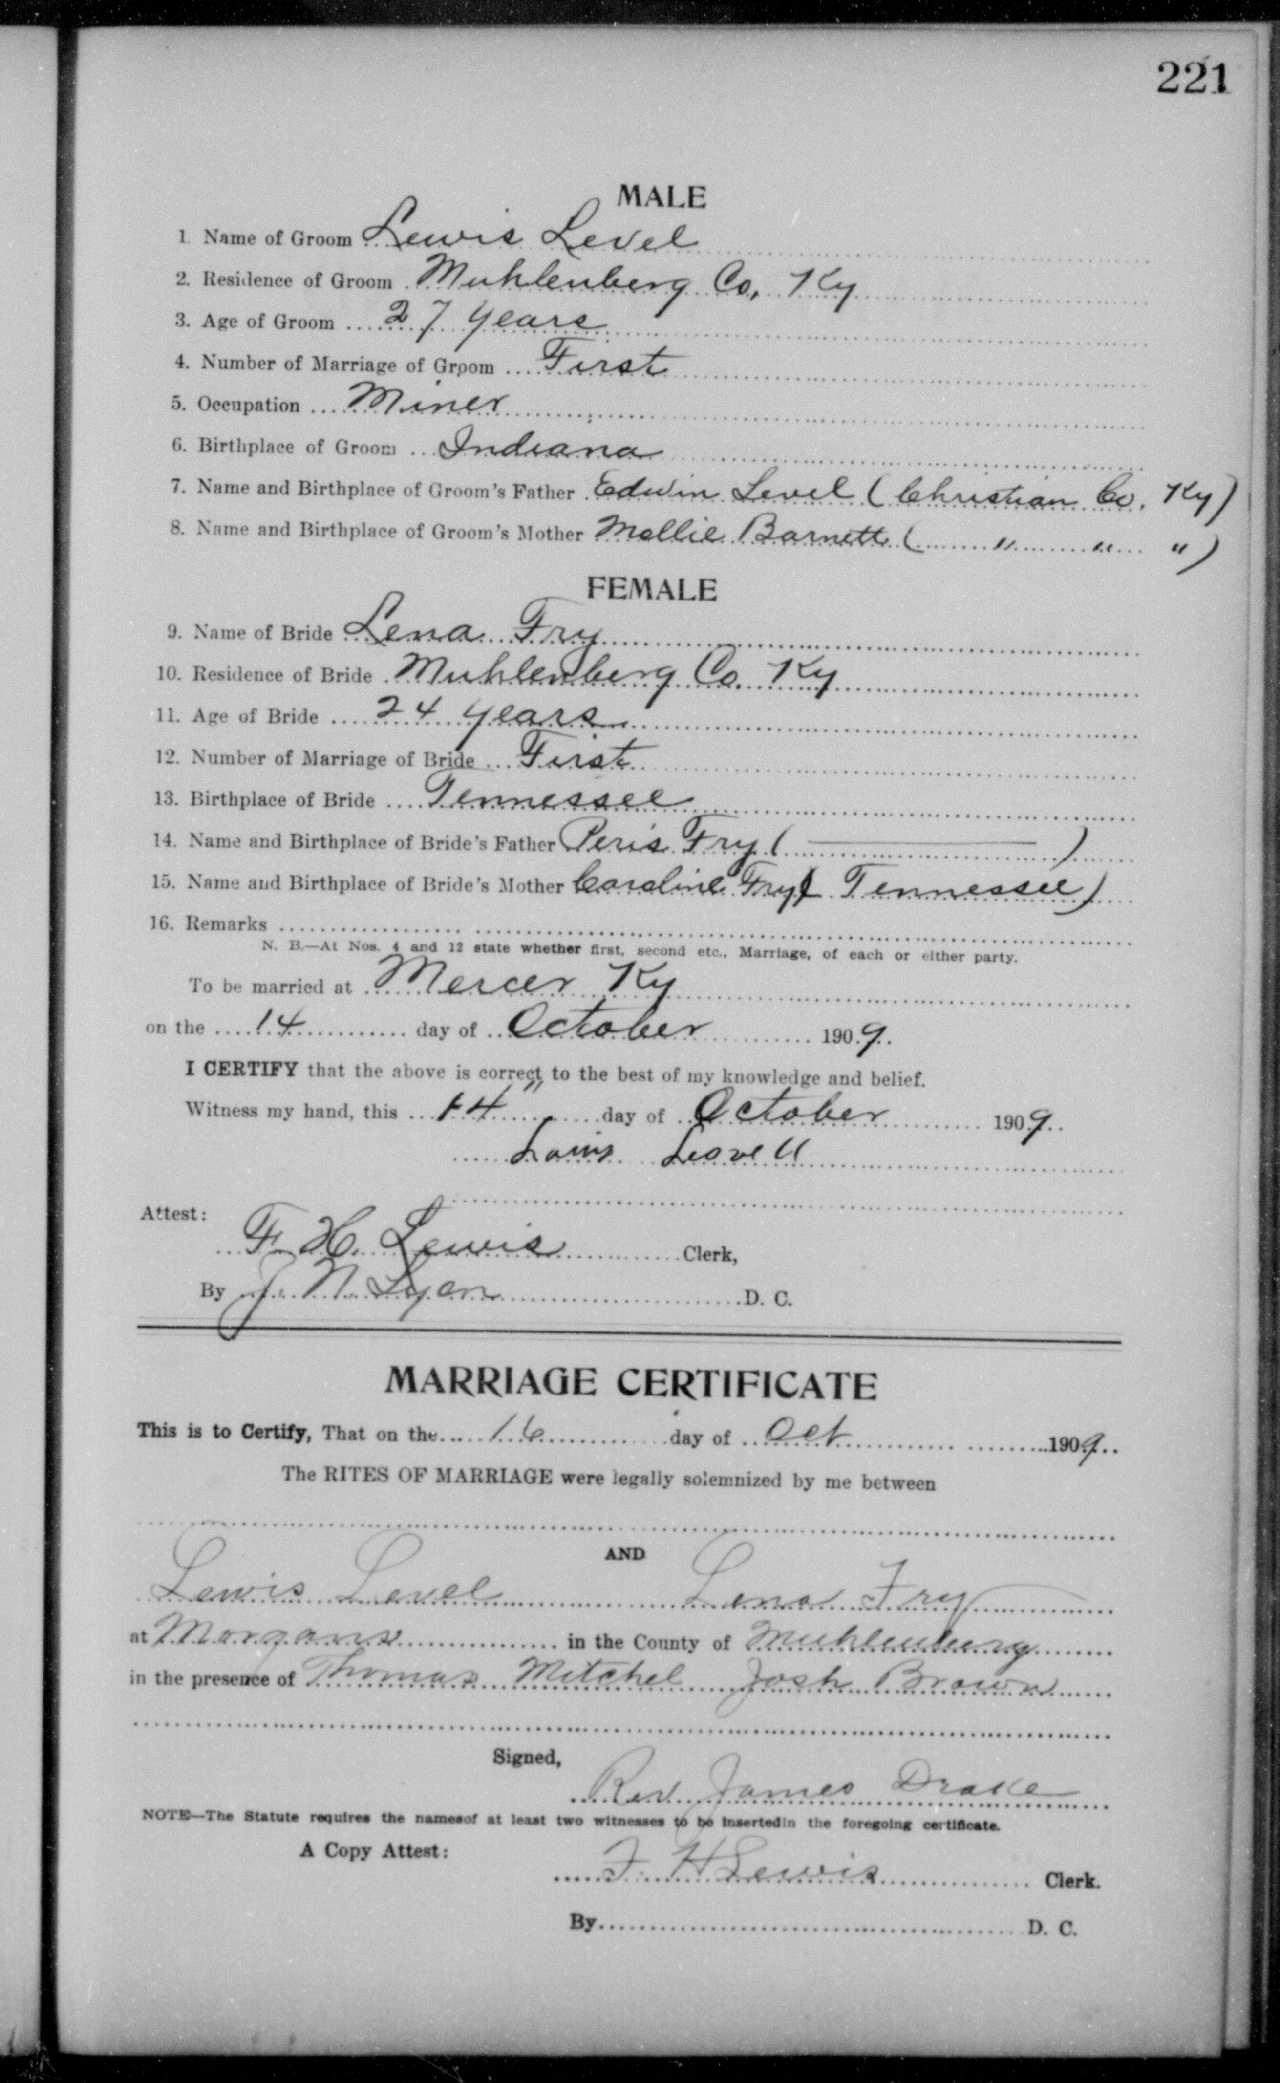 221
MALE
1 Name of Groom Lewis Level
2. Residence of Groom Muhlenberg Co, Ky
3. Age of Groom 27 years
4. Number of Marriage of Groom First
5. Occupation Miner
6. Birthplace of Groom Indiana
7. Name and Birthplace of Groom's Father Edwin Level (Christian Co. Ky)
8. Name and Birthplace of Groom's Mother Mollie Barnett ( " " ")
FEMALE
9. Name of Bride Lena Fry
10. Residence of Bride Muhlenberg Co. Ky
11. Age of Bride 24 years
12. Number of Marriage of Bride First
13. Birthplace of Bride Tennessee
14. Name and Birthplace of Bride's Father Peris Fry ( — )
15. Name and Birthplace of Bride's Mother Caroline Fry ( Tennessee)
16. Remarks
N. B.—At Nos. 4 and 12 state whether first, second etc., Marriage, of each or either party.
To be married at Mercer Ky
on the 14 day of October 1909.
I CERTIFY that the above is correct, to the best of my knowledge and belief.
Witness my hand, this 14" day of October 1909.
Louis Leavell
Attest:
F. H. Lewis Clerk,
By J. N. Lyon D. C.
MARRIAGE CERTIFICATE
This is to Certify, That on the 16 day of Oct 1909.
The RITES OF MARRIAGE were legally solemnized by me between
AND
Lewis Level Lena Fry
at Morgans in the County of Muhlenberg
in the presence of Thomas Mitchel Josh Brown
Signed,
Rev. James Drake
NOTE—The Statute requires the namesof at least two witnesses to be insertedin the foregoing certificate.
A Copy Attest:
F. H Lewis Clerk.
By D. C.